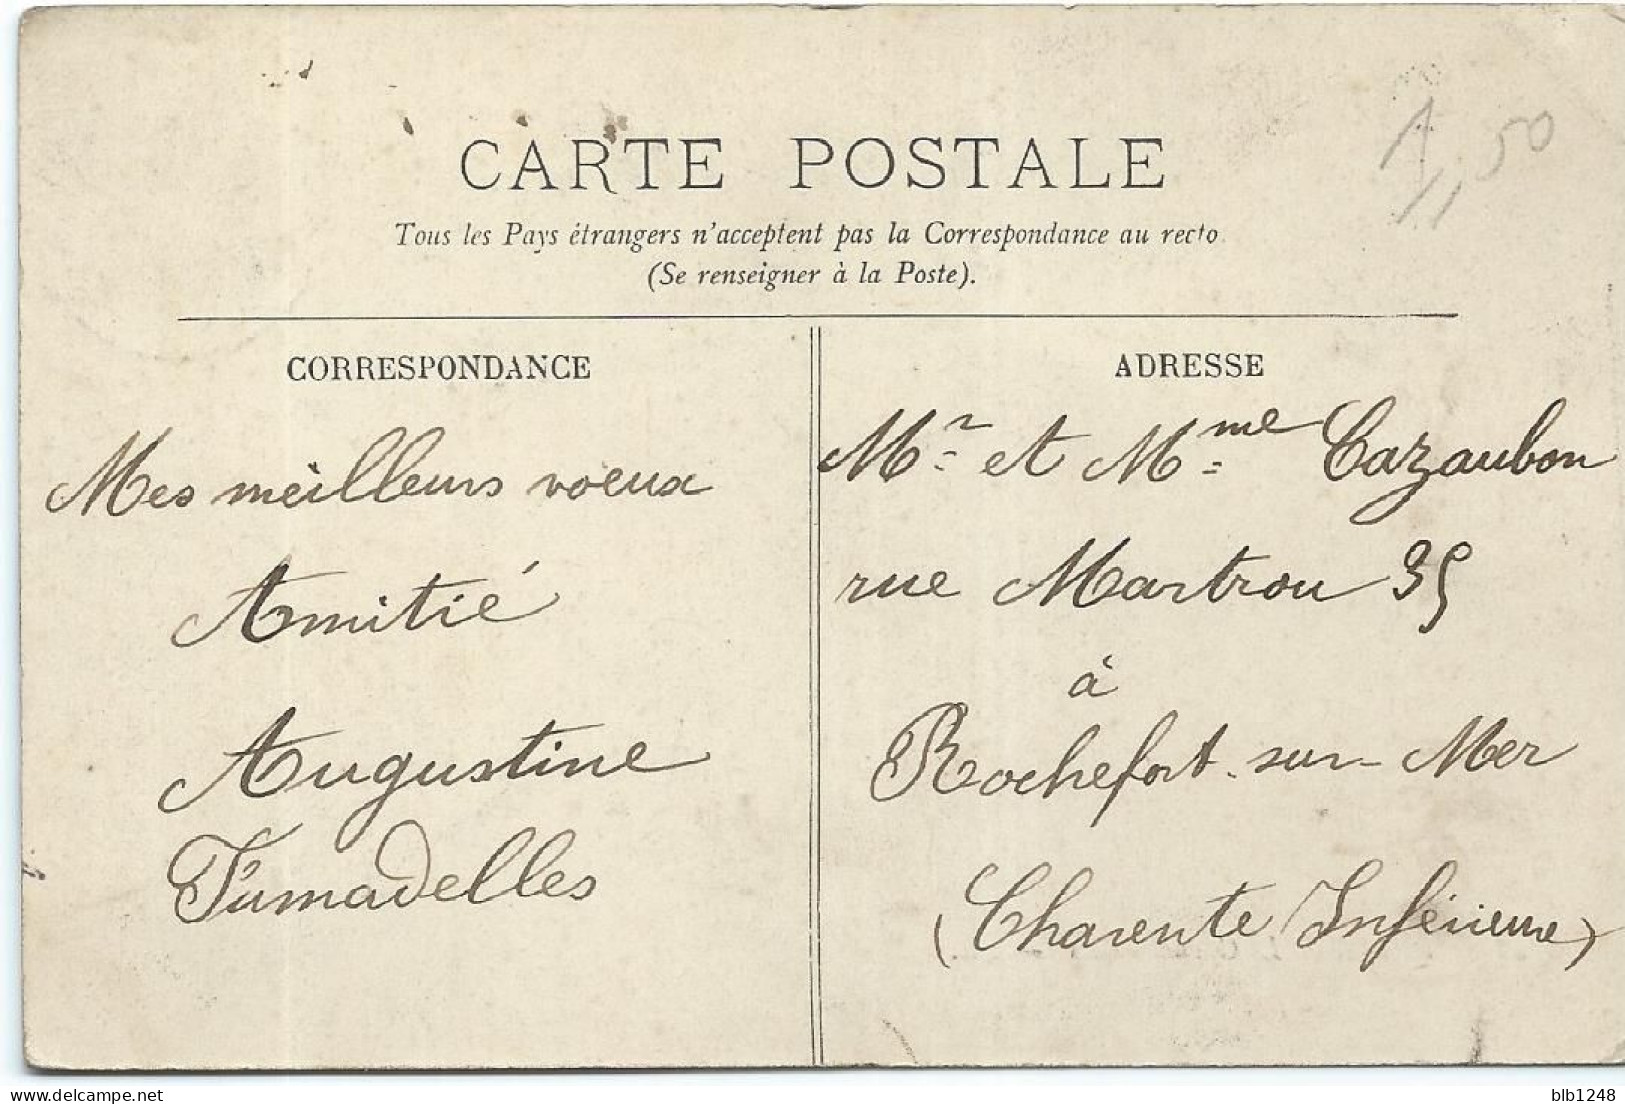 1,50
CARTE POSTALE
Tous les Pays étrangers n'acceptent pas la Correspondance au recto
(Se renseigner à la Poste).
CORRESPONDANCE
Mes meilleurs voeux
Amitié
Augustine
Fumadelles
ADRESSE
Mr et Mme Cazaubon
rue Martrou 35
à
Rochefort-sur-Mer
(Charente Inférieure)
delcampe.net
blb1248